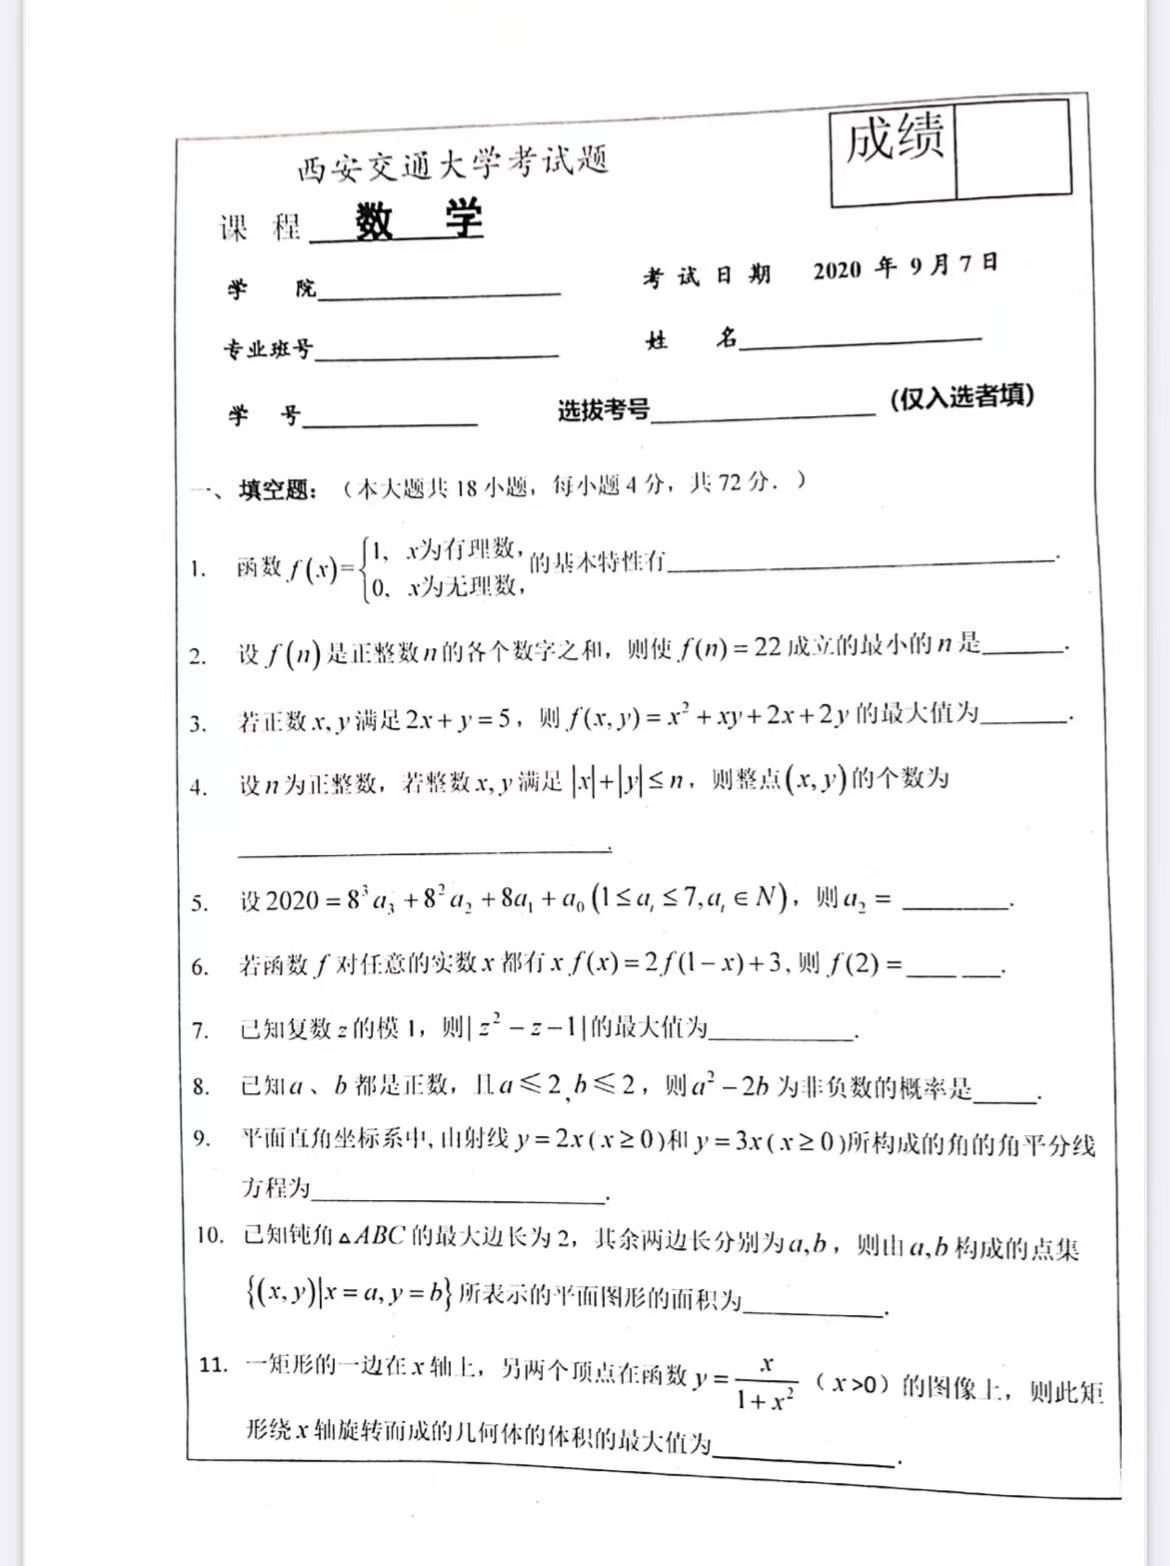 成绩
西安交通大学考试题
课 程 数 学
学 院 考试日期 2020 年 9 月 7 日
专业班号 姓 名
学 号 选拔考号 (仅入选者填)
一、填空题：（本大题共 18 小题，每小题 4 分，共 72 分．）
1. 函数 f(x)={1, x为有理数, 0, x为无理数, 的基本特性有____.
2. 设 f(n) 是正整数 n 的各个数字之和，则使 f(n) = 22 成立的最小的 n 是____.
3. 若正数 x, y 满足 2x + y = 5，则 f(x, y) = x² + xy + 2x + 2y 的最大值为____.
4. 设 n 为正整数，若整数 x, y 满足 |x|+|y| ≤ n，则整点(x, y)的个数为
____.
5. 设 2020 = 8³a₃ + 8²a₂ + 8a₁ + a₀ (1 ≤ aᵢ ≤ 7, aᵢ ∈ N)，则 a₂ = ____.
6. 若函数 f 对任意的实数 x 都有 x f(x) = 2 f(1 − x) + 3, 则 f(2) = ____ ____.
7. 已知复数 z 的模 1，则| z² − z − 1 |的最大值为____.
8. 已知 a 、b 都是正数，且 a ⩽ 2, b ⩽ 2，则 a² − 2b 为非负数的概率是____.
9. 平面直角坐标系中, 由射线 y = 2x ( x ≥ 0 )和 y = 3x ( x ≥ 0 )所构成的角的角平分线
方程为____.
10. 已知钝角 △ABC 的最大边长为 2，其余两边长分别为 a, b，则由 a, b 构成的点集
{(x, y)|x = a, y = b} 所表示的平面图形的面积为____.
11. 一矩形的一边在 x 轴上，另两个顶点在函数 y = x/(1 + x²) （ x >0）的图像上，则此矩
形绕 x 轴旋转而成的几何体的体积的最大值为____.